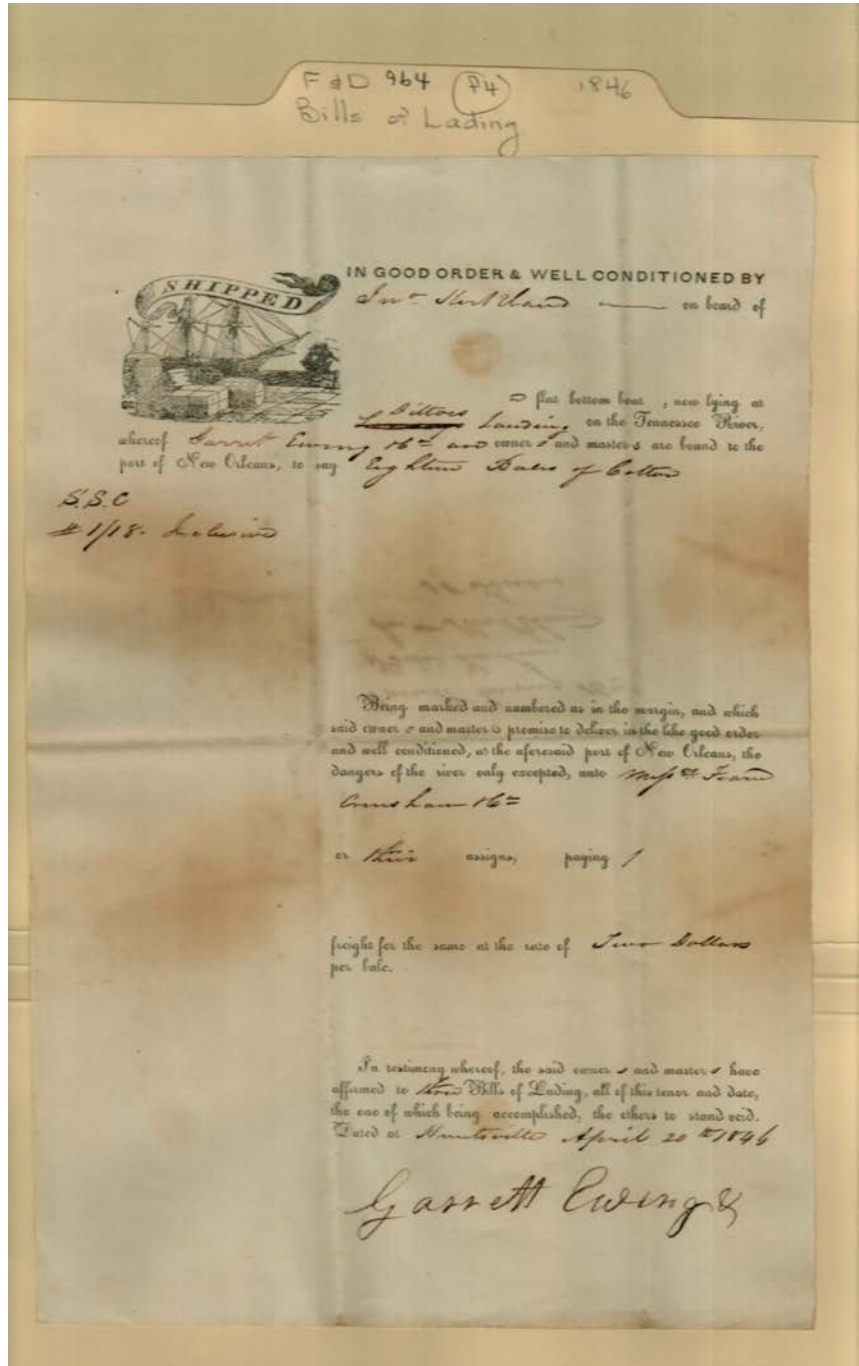 F & D 964 (P4) 1846
Bills of Lading
SHIPPED
IN GOOD ORDER & WELL CONDITIONED BY
Jno. Kirkland on board of
a flat bottom boat, now lying at
Dittoes Landing on the Tennessee River,
whereof Garret Ewing & Co are owners and masters are bound to the
port of New Orleans, to say Eighteen Bales of Cotton
S.S.C
# 1/18. Inclusive
Being marked and numbered as in the margin, and which
said owners and masters promise to deliver in the like good order
and well conditioned, at the aforesaid port of New Orleans, the
dangers of the river only excepted, unto Messrs
& Co
or their assigns, paying
freight for the same at the rate of Two Dollars
per bale.
In testimony whereof, the said owners and masters have
affirmed to three Bills of Lading, all of this tenor and date,
the one of which being accomplished, the others to stand void.
Dated at Huntsville April 20th 1846
Garrett Ewing &